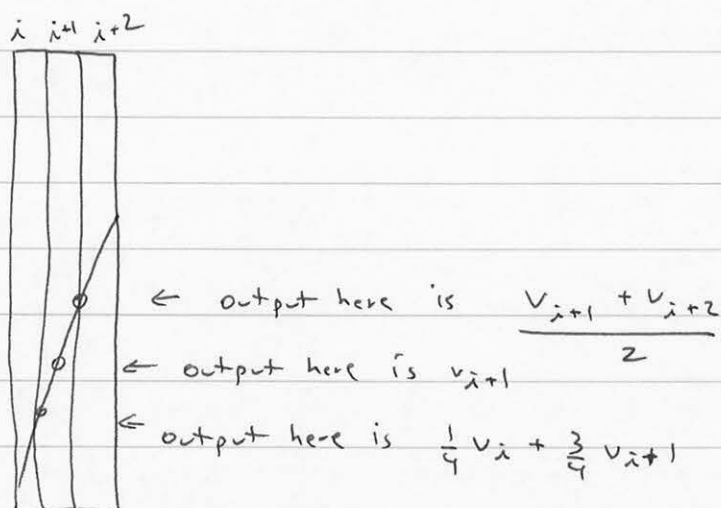 i i+1 i+2
← output here is (v_{i+1} + v_{i+2}) / 2
← output here is v_{i+1}
← output here is 1/4 v_i + 3/4 v_{i+1}